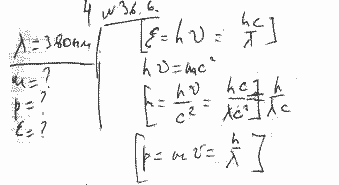 4 № 36.6.
λ = 380 нм
m = ?
p = ?
ε = ?
[ε = hν = hc/λ]
hν = mc²
[m = hν/c² = hc/λc²] h/λc
[p = mv = h/λ]